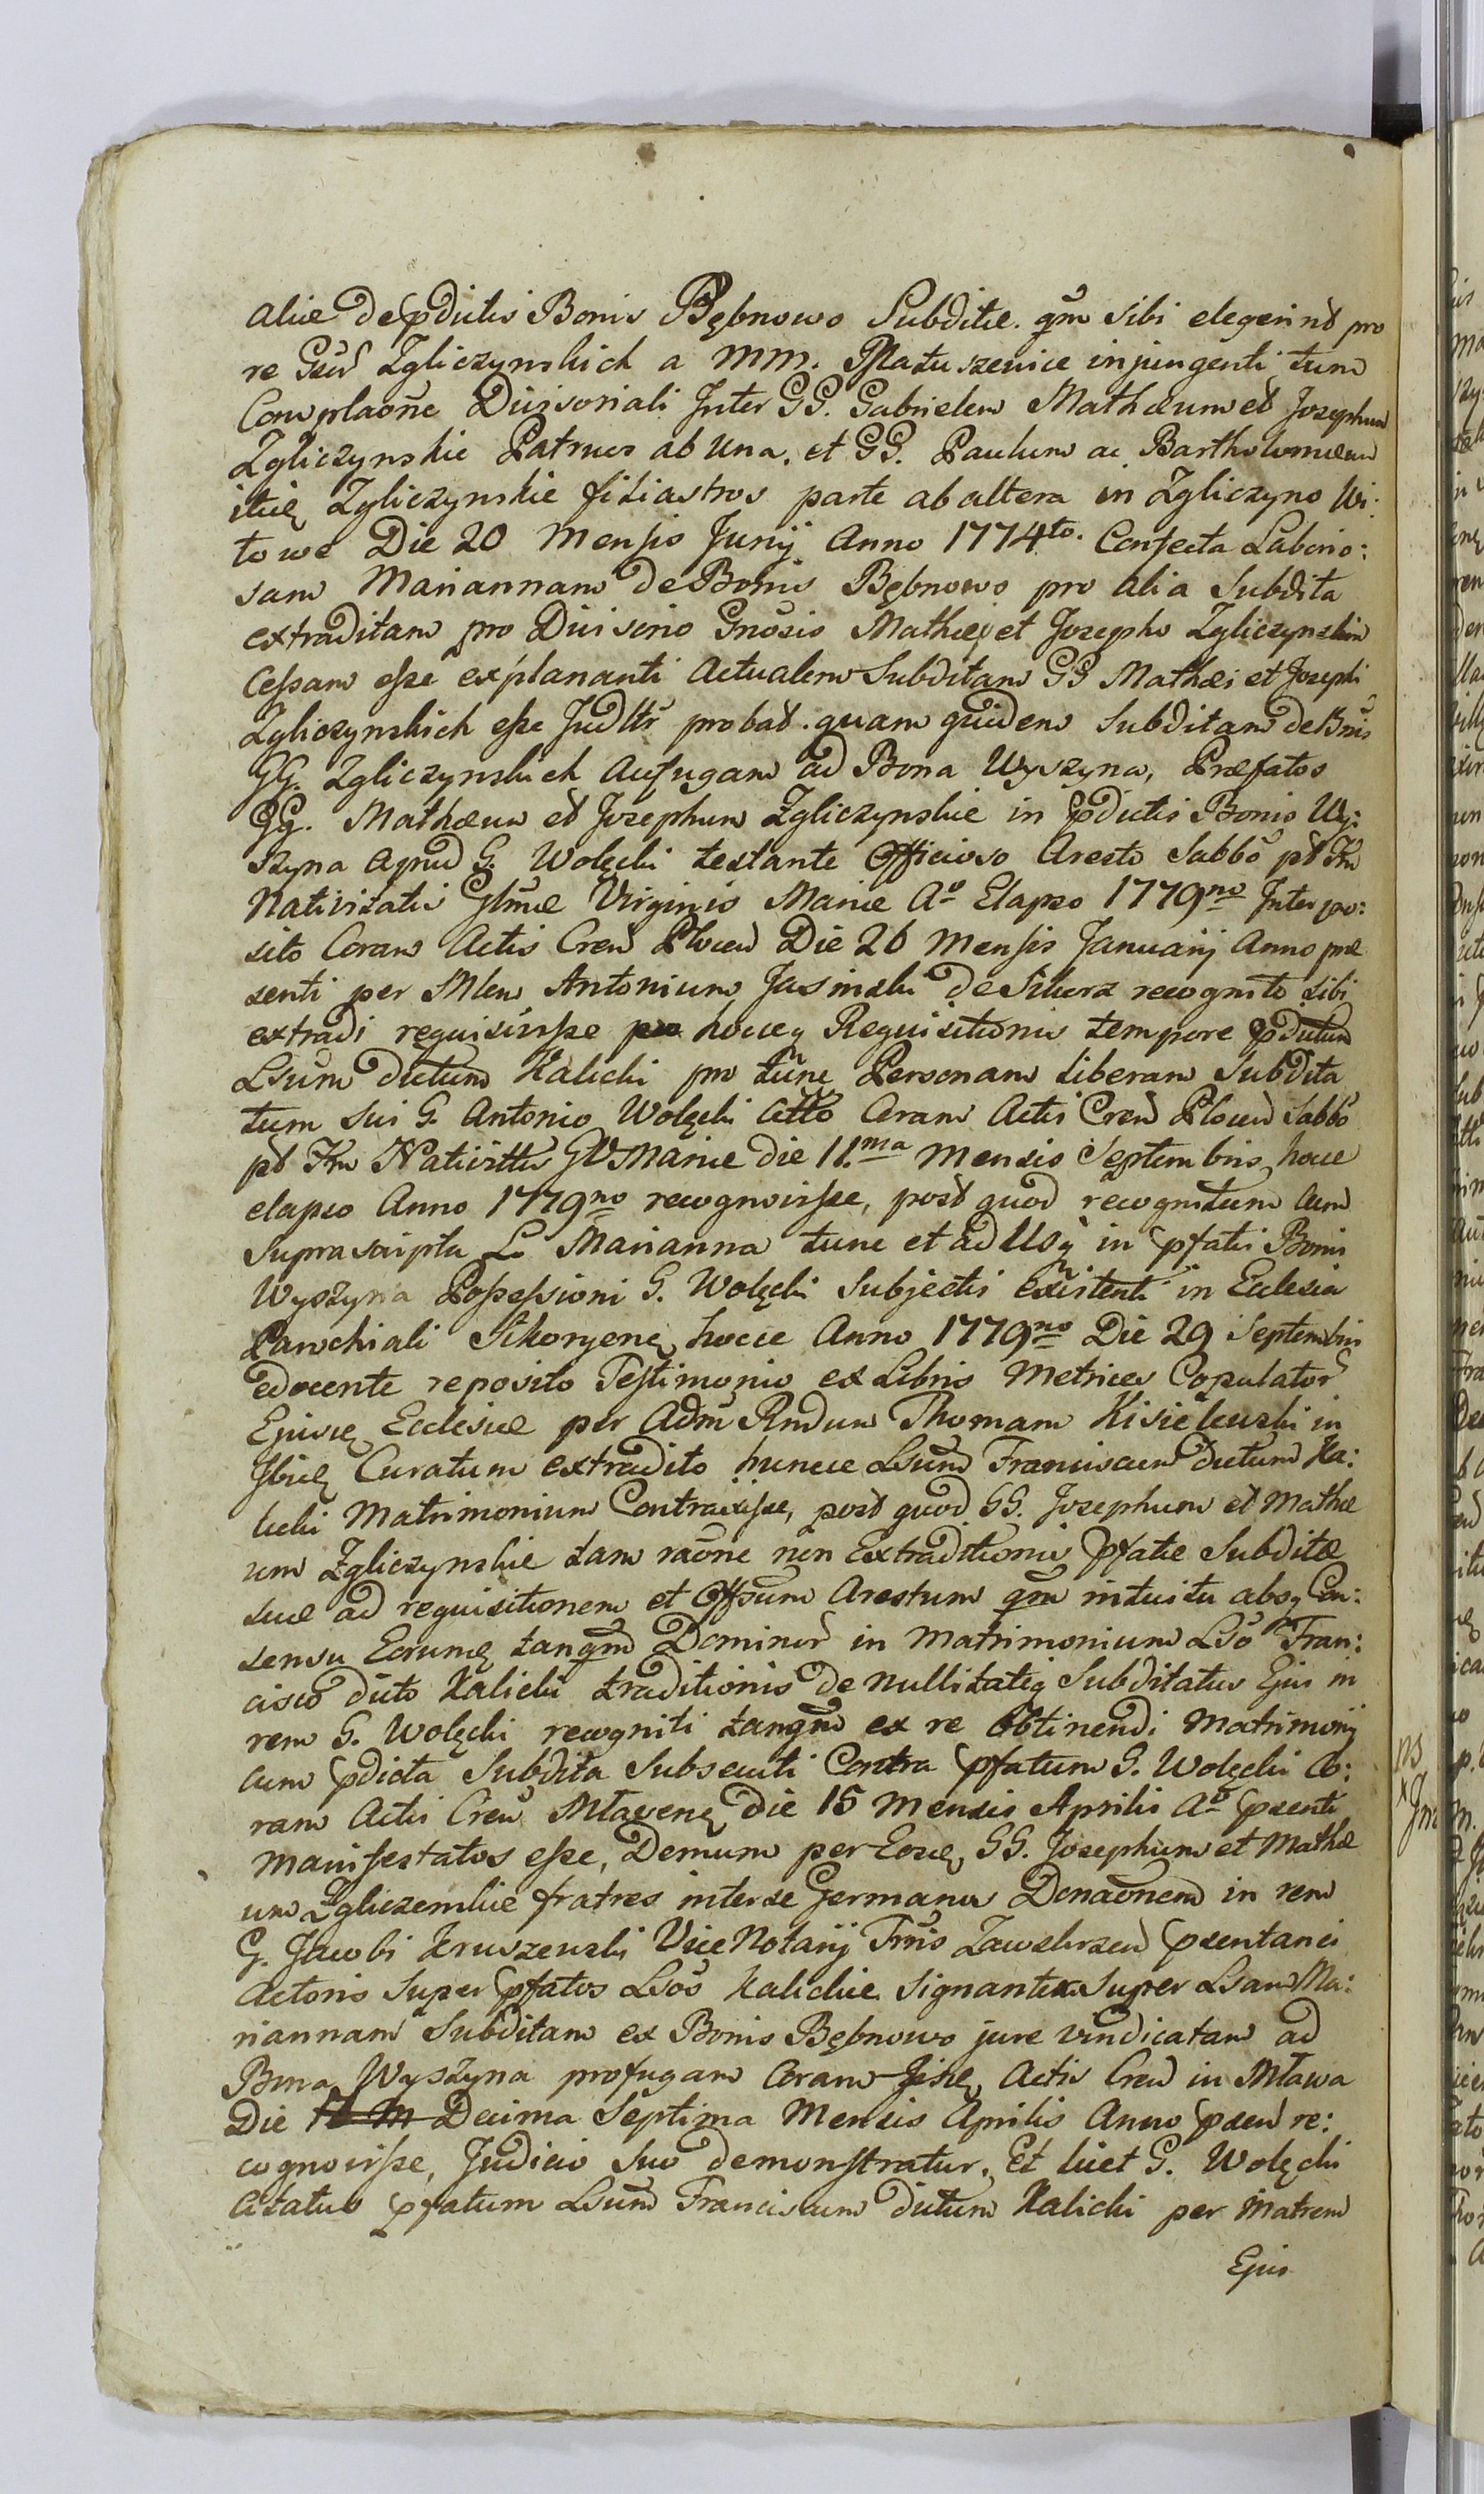 aliæ de pdictis Bonis Bębnowo Subditæ. qm sibi elegerint pro
re GGrū Zgliczynskich a MM. Matuszewice injungenti tum
Complaōne Divisoriali Inter GG. Gabrielem Mathæum et Josephum
Zgliczynskie Patrues ab una. et GG. Paulum ac Bartholomæum
itię Zgliczynskie filiastros parte ab altera in Zgliczyno Wi:
towe Die 20 Mensis Junij Anno 1774to. Confecta Laborio:
sam Mariannam de Bonis Bębnowo pro alia Subdita
extraditam pro Divisorio Gnōsis Mathæo et Josepho Zgliczynskim
Cessam esse explananti Actualem Subditam GG Mathæi et Josephi
Zgliczynskich esse Judltr probat. quam quidem Subditam de Bnis
GG. Zgliczynskich Aufugam ad Bona Wyszyna, Præfatos
GG. Mathæum et Josephum Zgliczynskie in pdictis Bonis Wy:
szyna apud G. Wolęcki testante Officioso Aresto Sabbō pt Fm
Nativitatis Glmæ Virginis Mariæ Ao Elapso 1779no Interpo:
sito Coram Actis Cren Plocen Die 26 Mensis Januarij Anno præ
senti per Mlem Antonium Jasinski de Sikorz recognito sibi
extradi requisivisse hocceq Requisitionis tempore pdictum
Lsum dictum Kalicki pro tunc Personam liberam Subdita
tum sui G. Antonio Wolęcki Actto Coram Actis Cren Plocen Sabbō
pt Fm Nativittis GVMariæ die 11.ma Mensis Septembris hocce
elapso Anno 1779no recognovisse, post quod recognitum cum
Suprascripta L. Marianna tunc et ad Usq in pfatis Bonis
Wyszyna Possessioni G. Wolęcki Subjectis Existenti in Ecclesia
Parochiali Sikorzenę hocce Anno 1779no Die 29 Septembris
edocente reposito Testimonio ex Libris Metrices Copulator
Ejusię Ecclesiæ per Adm Rndum Thomam Kisielewski in
Ibię Curatum extradito huncce Lsum Franciscum dictum Ka:
licki Matrimonium Contraxisse, post quod GG. Josephum et Mathæ
um Zgliczynskie tam raōne non Extraditionis pfatæ Subditæ
suæ ad requisitionem et Offsum Arestum qm intuitu absq Con:
sensu Eorumę tanqm Dominor in Matrimonium Lsō Fran:
cisco dicto Kalicki traditionis de nullitateq Subditatus Ejus in
rem G. Wolęcki recogniti tanqm ex re obtinendi Matrimonij
cum pdicta Subdita Subsecuti Contra pfatum G. Wolęcki Co:
ram Actis Cren Mlavenę die 15 Mensis Aprilis Ao psenti
manifestatos esse, Demum per Eosię GG. Josephum et Mathæ
um Zgliczenskie fratres inter se Germanos Donaōnem in rem
G. Jacobi Kruszewski Vice Notarij Trris Zawskrzen psentanei
Actoris Super pfatos Lsos Kalickie Signanter Super Lsam Ma:
riannam Subditam ex Bonis Bębnowo jure vindicatam ad
Bona Wyszyna profugam Coram Iisię Actis Cren in Mława
Die Decima Septima Mensis Aprilis Anno psen re:
cognovisse, Judicio suo demonstratur. Et licet G. Wolęcki
Citatus pfatum Lsum Franciscum dictum Kalicki per Matrem
Ejus